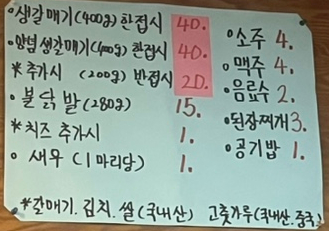 • 생갈매기(400g) 한접시 40.
• 양념생갈매기(400g) 한접시 40.
* 추가시 (200g) 반접시 20.
• 불닭발(280g) 15.
* 치즈 추가시 1.
• 새우 (1마리당) 1.
• 소주 4.
• 맥주 4.
• 음료수 2.
• 된장찌개 3.
• 공기밥 1.
* 갈매기. 김치. 쌀 (국내산) 고춧가루(국내산.중국)